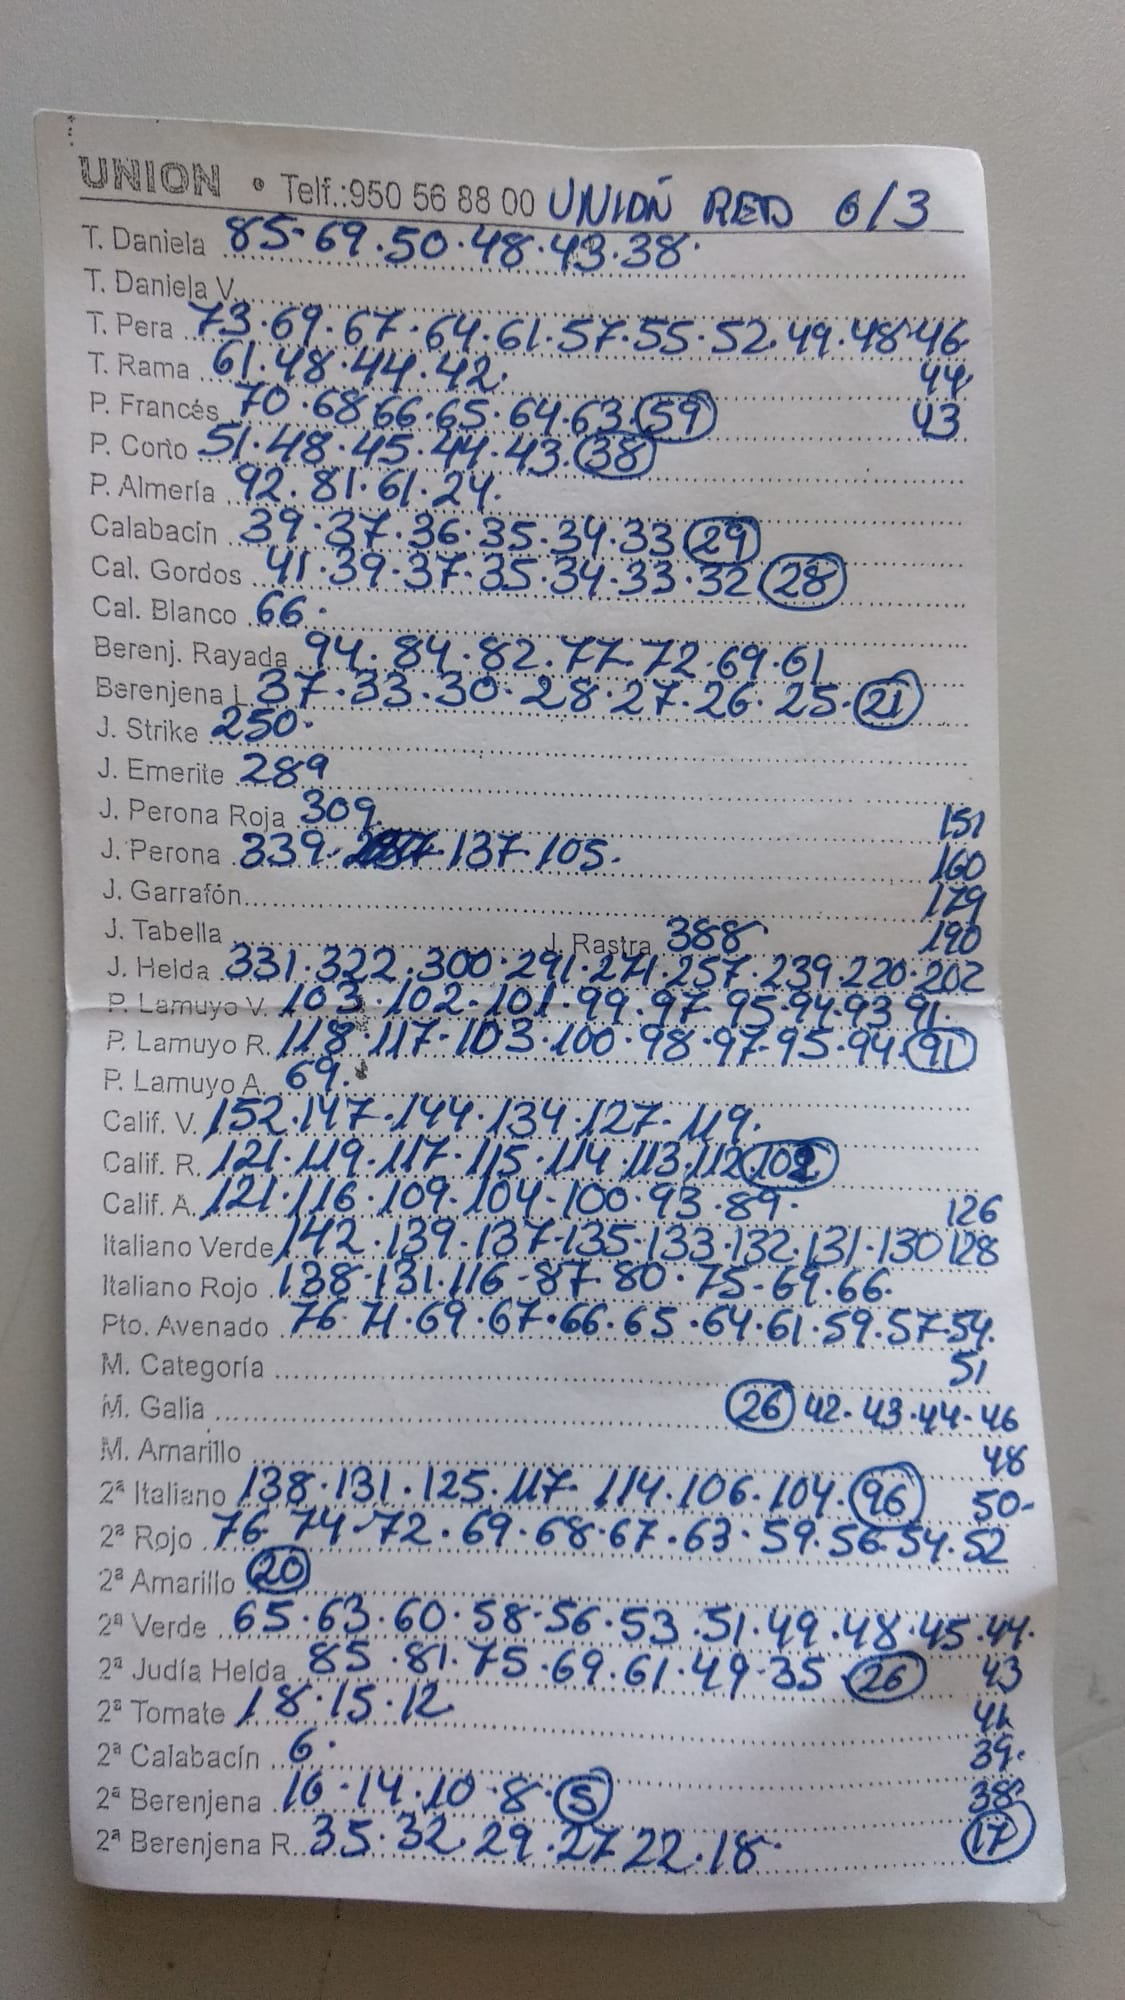 UNION • Telf.:950 56 88 00 UNIÓN RED 6/3
T. Daniela 85·69·50·48·43·38·
T. Daniela V.
T. Pera 73·69·67·64·61·57·55·52·49·48·46
T. Rama 61·48·44·42· 44
P. Francés 70·68 66·65·64·63·59 43
P. Corto 51·48·45·44·43·38
P. Almería 92·81·61·24·
Calabacín 39·37·36·35·34·33 29
Cal. Gordos 41·39·37·35·34·33·32 28
Cal. Blanco 66·
Berenj. Rayada 94·84·82·77·72·69·61
Berenjena L. 37·33·30·28·27·26·25·21
J. Strike 250·
J. Emerite 289
J. Perona Roja 309· 151
J. Perona 339· 137·105· 160
J. Garrafón 179
J. Tabella J. Rastra 388 190
J. Helda 331·322·300·291·271·257·239·220·202
P. Lamuyo V. 103·102·101·99·97·95·94·93 91·
P. Lamuyo R. 118·117·103·100·98·97·95·94·91
P. Lamuyo A. 69·
Calif. V. 152·147·144·134·127·119·
Calif. R. 121·119·117·115·114·113·112 102
Calif. A. 121·116·109·104·100·93·89· 126
Italiano Verde 142·139·137·135·133·132·131·130 128
Italiano Rojo 138·131·116·87·80·75·69·66·
Pto. Avenado 76·71·69·67·66·65·64·61·59·57·54·
M. Categoría 51
M. Galia 26 42·43·44·46
M. Amarillo 48
2ª Italiano 138·131·125·117·114·106·104·96 50-
2ª Rojo 76·74·72·69·68·67·63·59·56·54·52
2ª Amarillo 20
2ª Verde 65·63·60·58·56·53·51·49·48·45·44·
2ª Judía Helda 85·81·75·69·61·49·35 26 43
2ª Tomate 18·15·12
2ª Calabacín 6· 39·
2ª Berenjena 16·14·10·8·5 38·
2ª Berenjena R. 35·32·29·27 22·18· 17